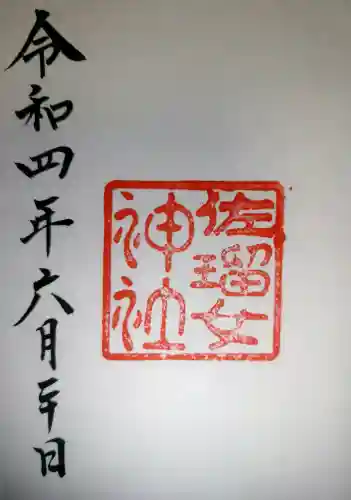 佐瑠女
神社
令和四年六月 日